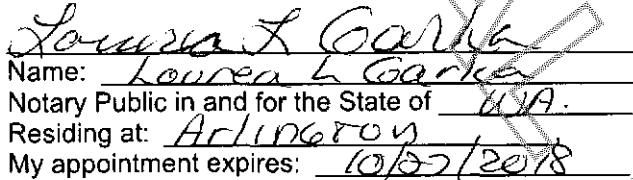 Lourea L Garka
Name: Lourea L Garka
Notary Public in and for the State of WA.
Residing at: Arlington
My appointment expires: 10/27/2018